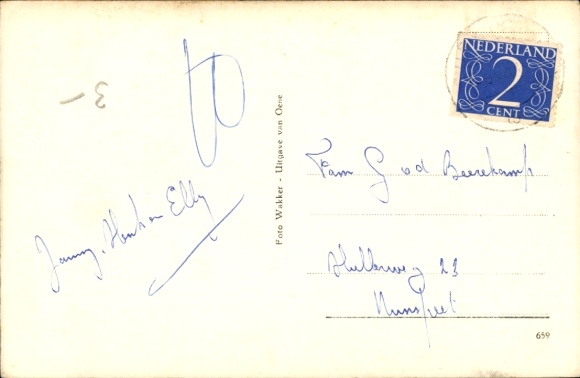 NEDERLAND
2
CENT
3
Foto Wakker - Uitgave van Oene
Fam G v d Beerekamp
23
Nunspeet
Janny, Henk en Elly
659